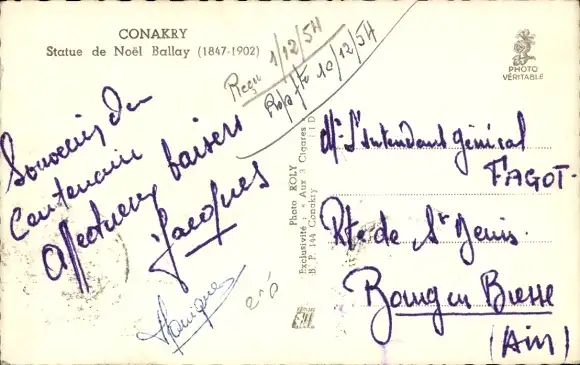 CONAKRY
Statue de Noël Ballay (1847-1902)
Reçu 1/12/54
Rép. le 10/12/54
PHOTO
VÉRITABLE
Souvenir du
Centenaire
Affectueux baisers
Jacques
Monique
Photo ROLY
Exclusivité : « Aux 3 Cigares
B. P. 144 Conakry
Mr l'Intendant Général
FAGOT
Rte de St Denis
Bourg en Bresse
(Ain)